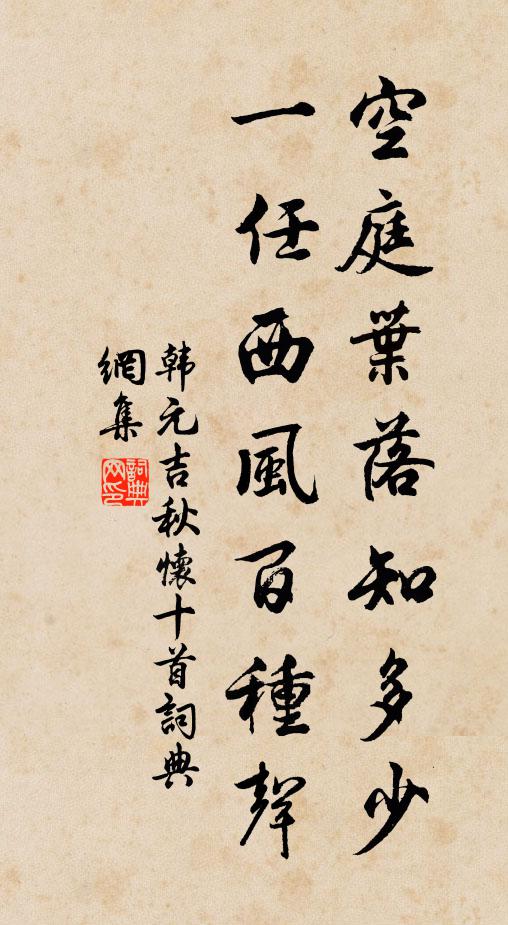 空庭葉落知多少
一任西風百種聲
韩元吉秋懷十首詞典
網集
詞典网印